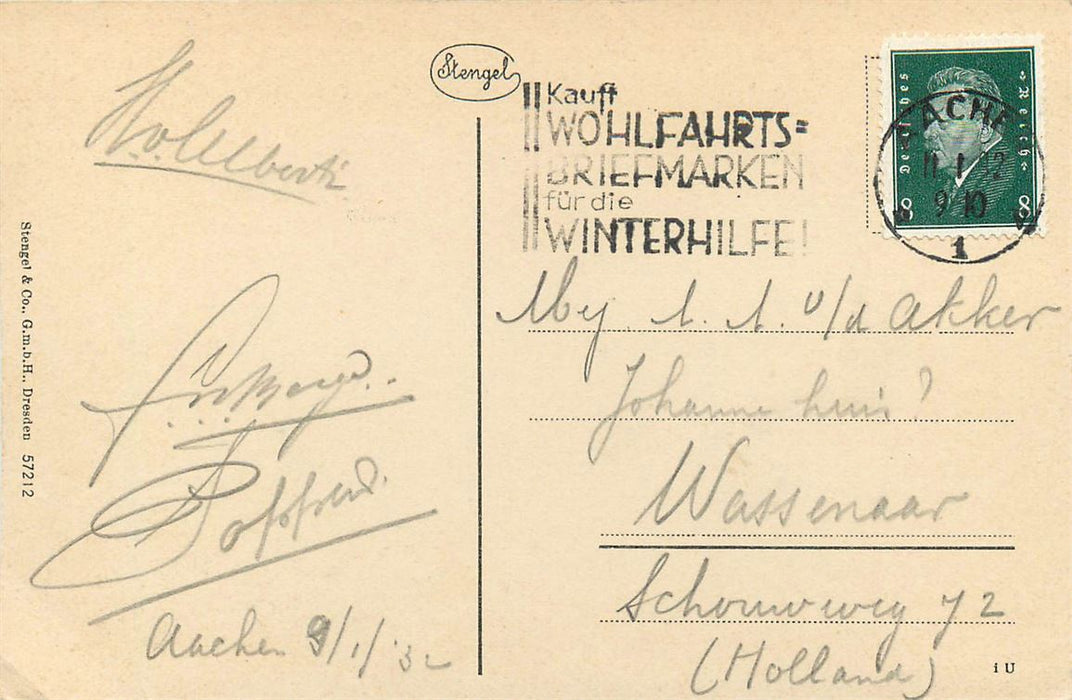 Stengel
Kauft
WOHLFAHRTS=
BRIEFMARKEN
für die
WINTERHILFE!
Deutsches Reich
8 8
AACHEN
11.1.32
9-10
1
Stengel & Co., G.m.b.H., Dresden 57212
Aachen 9/1/32
Mej. A. A. v/d Akker
Johanna huis
Wassenaar
Schouwweg 72
(Holland)
i U